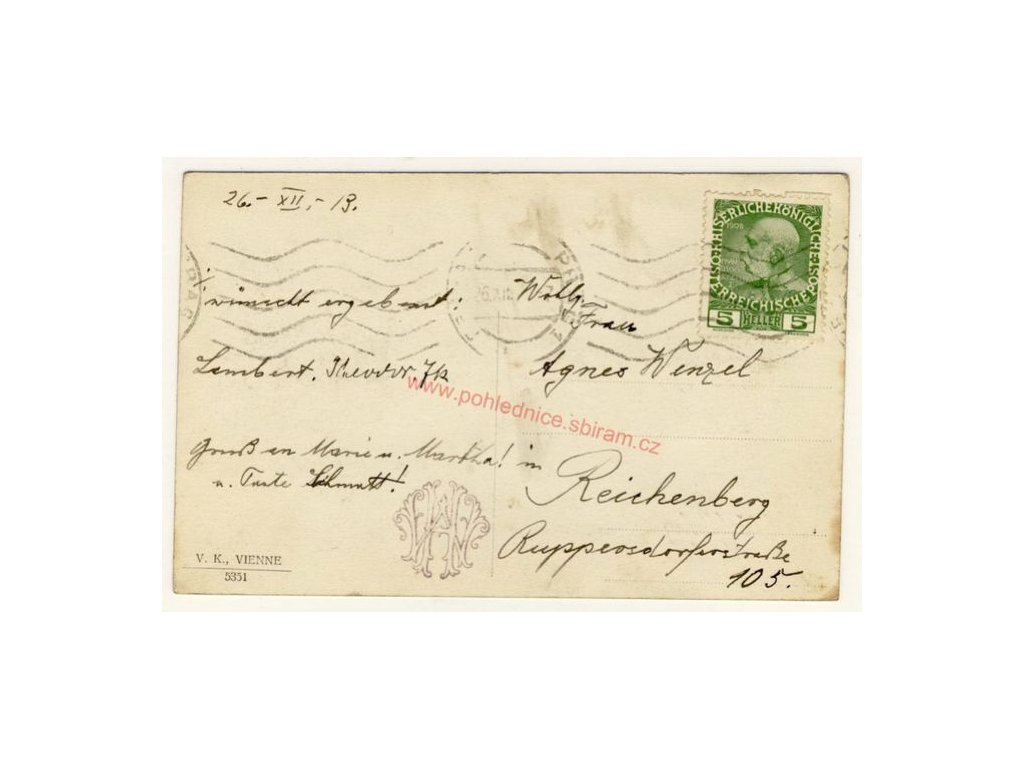 26.- XII.- 13.
wünscht ergebenst:
Lambert. Theodor
Gruß an Marie u. Martha!
u. Tante Schmatt!
V. K., VIENNE
5351
KAISERLICHEKÖNIGLICHE
ÖSTERREICHISCHEPOST
1908
5 HELLER 5
PRAG
26.XII
Wohlg.
Frau
Agnes Wenzel
in
Reichenberg
Ruppersdorferstraße
105.
www.pohlednice.sbiram.cz